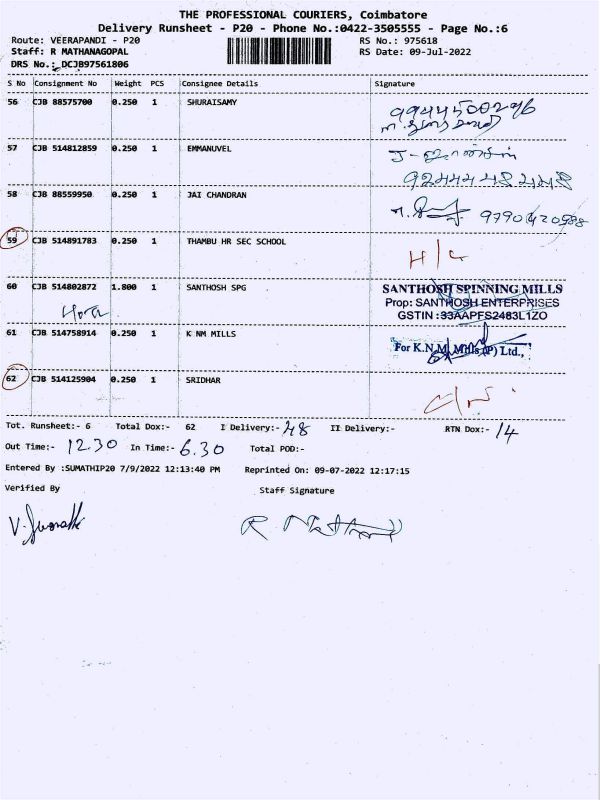 THE PROFESSIONAL COURIERS, Coimbatore
Delivery Runsheet - P20 - Phone No.:0422-3505555 - Page No.:6
Route: VEERAPANDI - P20 RS No.: 975618
Staff: R MATHANAGOPAL RS Date: 09-Jul-2022
DRS No.: DCJB97561806
S No Consignment No Weight PCS Consignee Details Signature
56 CJB 88575700 0.250 1 SHURAISAMY
57 CJB 514812859 0.250 1 EMMANUVEL
58 CJB 88559950 0.250 1 JAI CHANDRAN 9790420988
59 CJB 514891783 0.250 1 THAMBU HR SEC SCHOOL H/C
60 CJB 514802872 1.800 1 SANTHOSH SPG SANTHOSH SPINNING MILLS
Prop: SANTHOSH ENTERPRISES
GSTIN :33AAPFS2483L1ZO
61 CJB 514758914 0.250 1 K NM MILLS For K.N.M. Mills (P) Ltd.,
62 CJB 514125904 0.250 1 SRIDHAR
Tot. Runsheet:- 6 Total Dox:- 62 I Delivery:- 48 II Delivery:- RTN Dox:- 14
Out Time:- 12.30 In Time:- 6.30 Total POD:-
Entered By :SUMATHIP20 7/9/2022 12:13:40 PM Reprinted On: 09-07-2022 12:17:15
Verified By Staff Signature